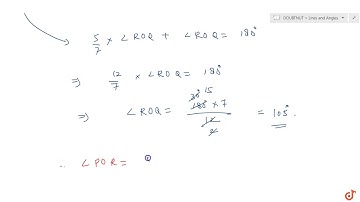 DOUBTNUT > Lines and Angles
5/7 × ∠ROQ + ∠ROQ = 180°
⇒ 12/7 × ∠ROQ = 180°
⇒ ∠ROQ = 30° 15 180° × 7 / 12 2 = 105°.
∴ ∠POR =